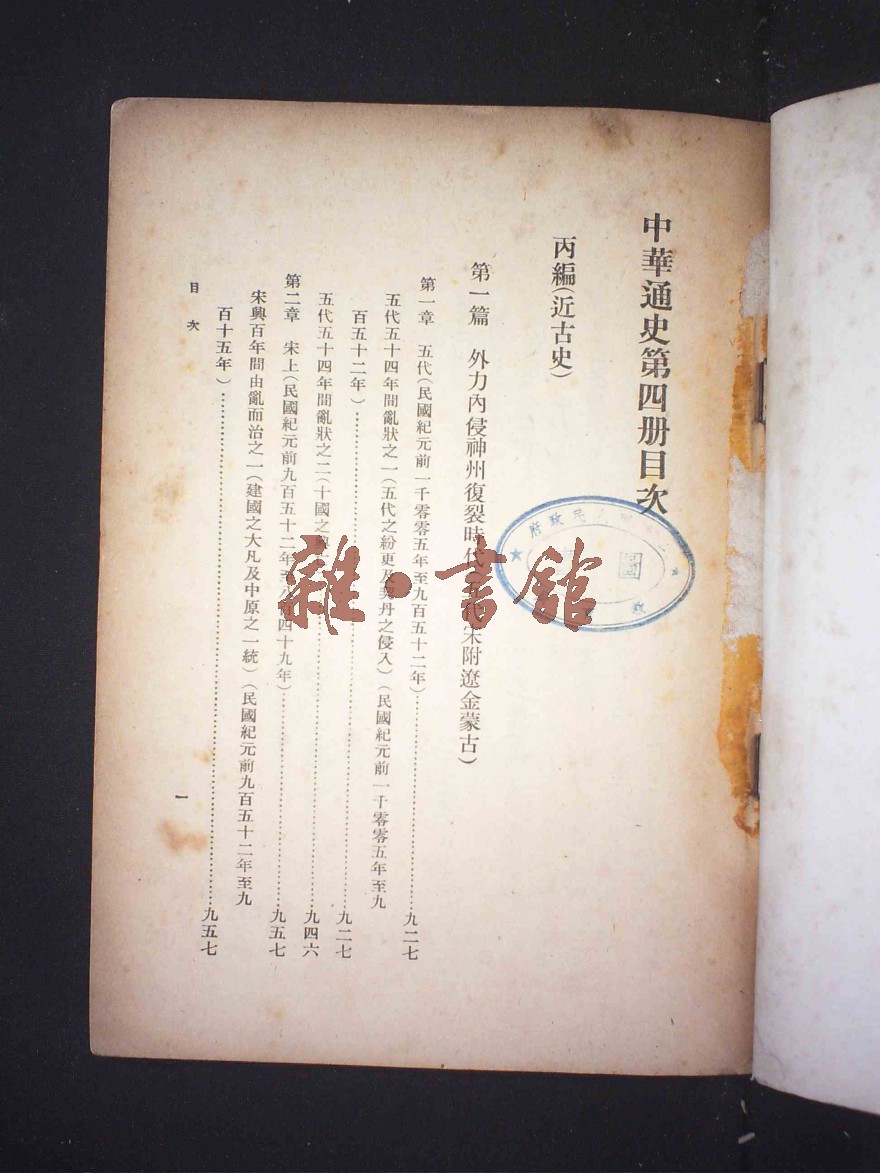 中華通史第四册目次
丙編(近古史)
第一篇 外力內侵神州復裂時代 宋附遼金蒙古)
第一章 五代(民國紀元前一千零零五年至九百五十二年)……九二七
五代五十四年間亂狀之一(五代之紛更及契丹之侵入)(民國紀元前一千零零五年至九
百五十二年)……九二七
五代五十四年間亂狀之二(十國之興……九四六
第二章 宋上(民國紀元前九百五十二年至八百四十九年)……九五七
宋興百年間由亂而治之一(建國之大凡及中原之一統)(民國紀元前九百五十二年至九
百十五年)……九五七
目次
一
民政府
圖
雜·書館